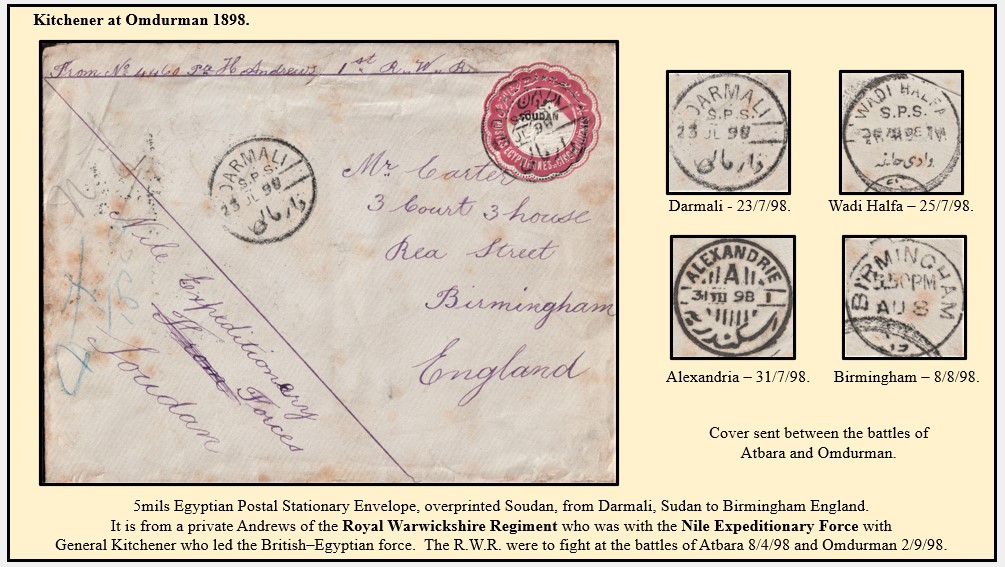 Kitchener at Omdurman 1898.
From No 4460 Pa H Andrews 1st R. W. R.
SOUDAN
JL 98
DARMALI
S.P.S.
23 JL 98
دارمالي
Mr Carter
3 Court 3 house
Rea Street
Birmingham
England
Nile
Expeditionary
Forces
Soudan
DARMALI
S.P.S.
23 JL 98
دارمالي
Darmali - 23/7/98.
WADI HALFA
S.P.S.
وادي حلفه
Wadi Halfa – 25/7/98.
ALEXANDRIE
A
31 VII 98 I
اسكندرية
Alexandria – 31/7/98.
BIRMINGHAM
5.50PM
AU 8
Birmingham – 8/8/98.
Cover sent between the battles of
Atbara and Omdurman.
5mils Egyptian Postal Stationary Envelope, overprinted Soudan, from Darmali, Sudan to Birmingham England.
It is from a private Andrews of the Royal Warwickshire Regiment who was with the Nile Expeditionary Force with
General Kitchener who led the British–Egyptian force. The R.W.R. were to fight at the battles of Atbara 8/4/98 and Omdurman 2/9/98.